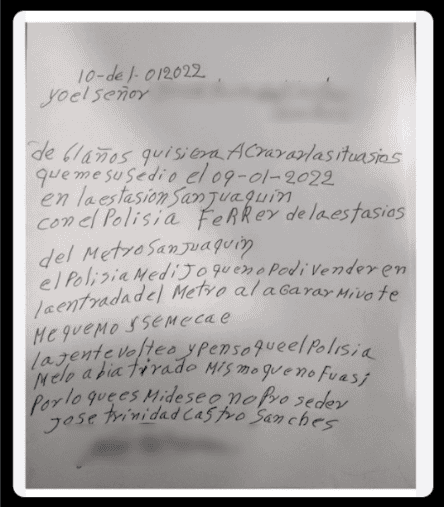 10-de 1-012022
yo el señor
de 61 años quisiera ACrarar la situasios
que me susedio el 09-01-2022
en la estasion San juaquin
con el Polisia FeRRer de la estasios
del Metro San juaquin
el Polisia Me dijo que no Podi vender en
la entrada del Metro al aGarar Mi vote
Me queMo y se Me cae
la jente volteo y Penso que el Polisia
Me lo abia tirado Mismo que no Fuasi
Por lo que es Mi deseo no Pro seder
Jose trinidad Castro Sanches